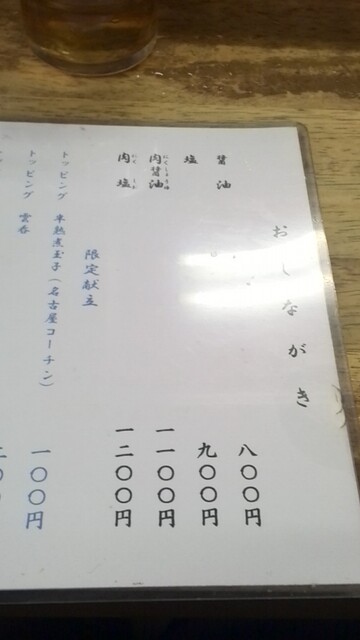 おしながき
醤油 八〇〇円
塩 九〇〇円
肉醤油 一一〇〇円
肉塩 一二〇〇円
限定献立
トッピング 半熟煮玉子(名古屋コーチン) 一〇〇円
トッピング 雲呑